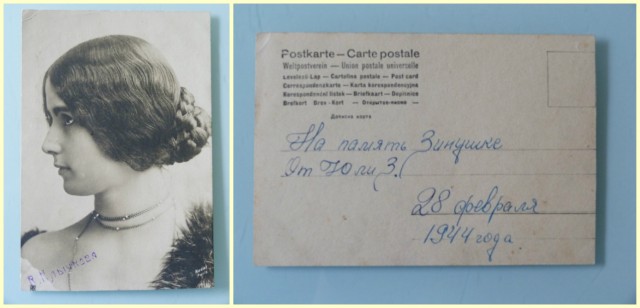 Postkarte — Carte postale
Weltpostverein — Union postale universelle
Levelező-Lap — Cartolina postale — Post card
Correspondenzkarte — Karta korespondencyjna
Korespondenční lístek — Briefkaart — Dopisnica
Brefkort Brev-Kort — Открытое письмо —
Дописна карта
На память Зинушке
От Юли З.
28 февраля
1944 года.